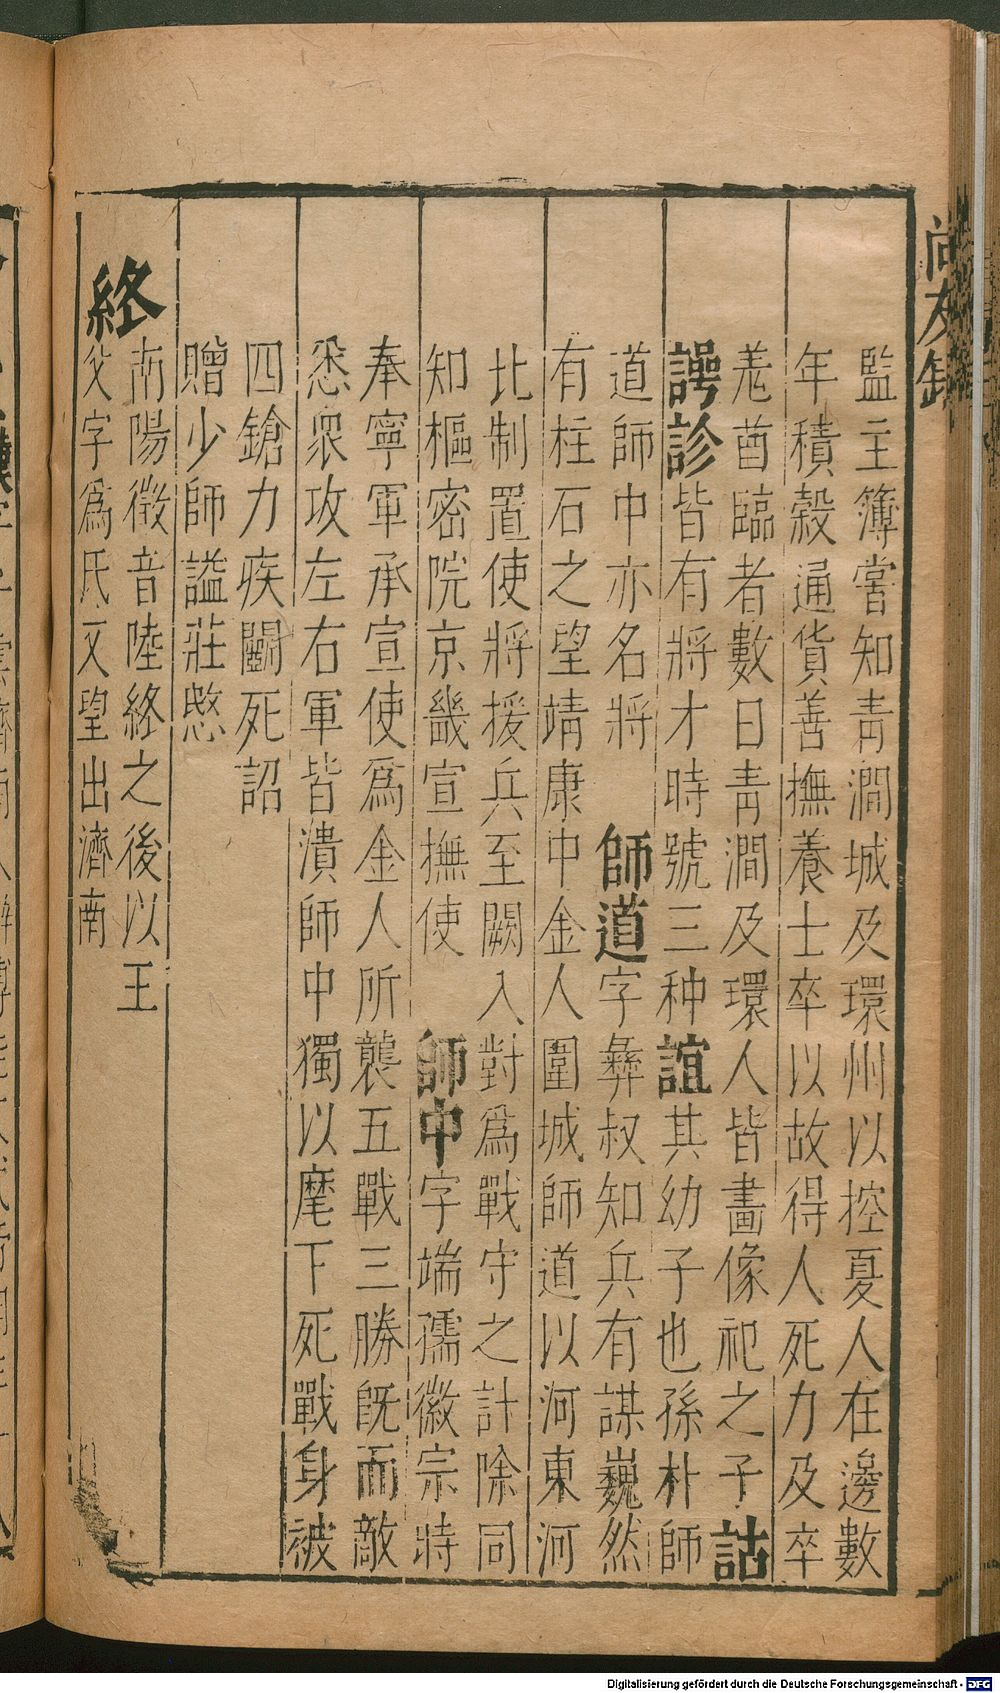 尚友錄
監主簿嘗知靑澗城及環州以控夏人在邊數
年積穀通貨善撫養士卒以故得人死力及卒
羗酋臨者數日靑澗及環人皆畫像祀之子詁
諤診皆有將才時號三种誼其幼子也孫朴師
道師中亦名將　師道字彝叔知兵有謀巍然
有柱石之望靖康中金人圍城師道以河東河
北制置使將援兵至闕入對爲戰守之計除同
知樞密院京畿宣撫使　師中字端孺徽宗時
奉寧軍承宣使爲金人所襲五戰三勝旣而敵
悉衆攻左右軍皆潰師中獨以麾下死戰身被
四鎗力疾鬭死詔
贈少師謚莊愍
終
南陽徵音陸終之後以王
父字爲氏又望出濟南
Digitalisierung gefördert durch die Deutsche Forschungsgemeinschaft - DFG